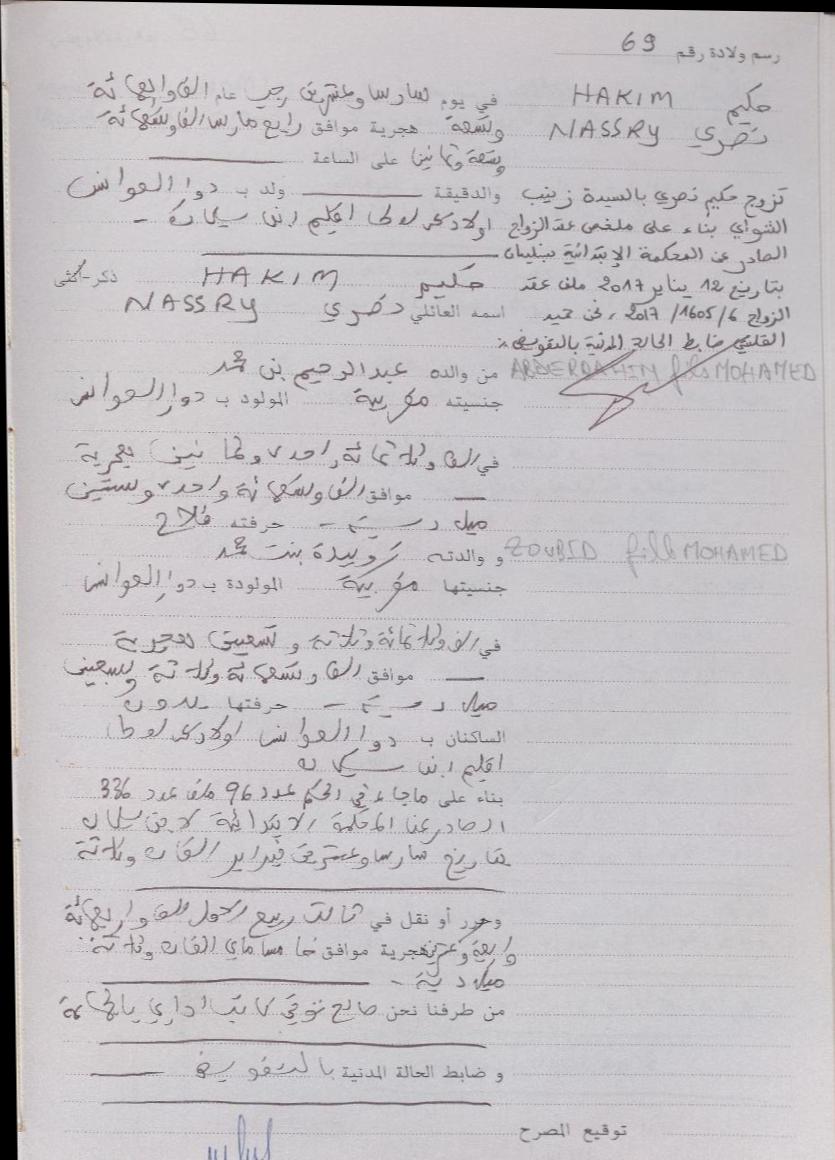 رسم ولادة رقم 69
حكيم HAKIM
نصري NASSRY
في يوم سادس وعشرين رجب عام الف واربعمائة
وتسعة هجرية موافق رابع مارس الف وتسعمائة
وتسعة وثمانين على الساعة
والدقيقة ولد ب دوار العوانس
اولاد يحيى لوطا اقليم ابن سليمان
حكيم HAKIM ذكر-أنثى
اسمه العائلي نصري NASSRY
تزوج حكيم نصري بالسيدة زينب
الشواي بناء على ملخص عقد الزواج
الصادر عن المحكمة الإبتدائية ببنسليمان
بتاريخ 12 يناير 2017 ملف عقد
الزواج 6/1605/2017، نحن حميد
ضابط الحالة المدنية بالتفويض
من والده عبد الرحيم بن محمد ABDERRAHIM fils MOHAMED
جنسيته مغربية المولود ب دوار العوانس
في الف وثلاثمائة واحد وثمانين هجرية
موافق الف وتسعمائة وواحد وستين
ميلادية حرفته فلاح
و والدته زوبيدة بنت محمد ZOUBID fille MOHAMED
جنسيتها مغربية المولودة ب دوار العوانس
في الف وثلاثمائة وثلاثة وتسعين هجرية
موافق الف وتسعمائة وثلاثة وسبعين
ميلادية حرفتها بدون
الساكنان ب دوار العوانس اولاد يحيى لوطا
اقليم ابن سليمان
بناء على ماجاء في الحكم عدد 96 ملف عدد 336
الصادر عن المحكمة الابتدائية لابن سليمان
بتاريخ سادس وعشرين فبراير الفان وثلاثة
وحرر أو نقل في ثالث ربيع الاول الف واربعمائة
واربعة وعشرين هجرية موافق خامس ماي الفان وثلاثة
ميلادية
من طرفنا نحن صالح كاتب اداري بالجماعة
و ضابط الحالة المدنية بالتفويض
توقيع المصرح